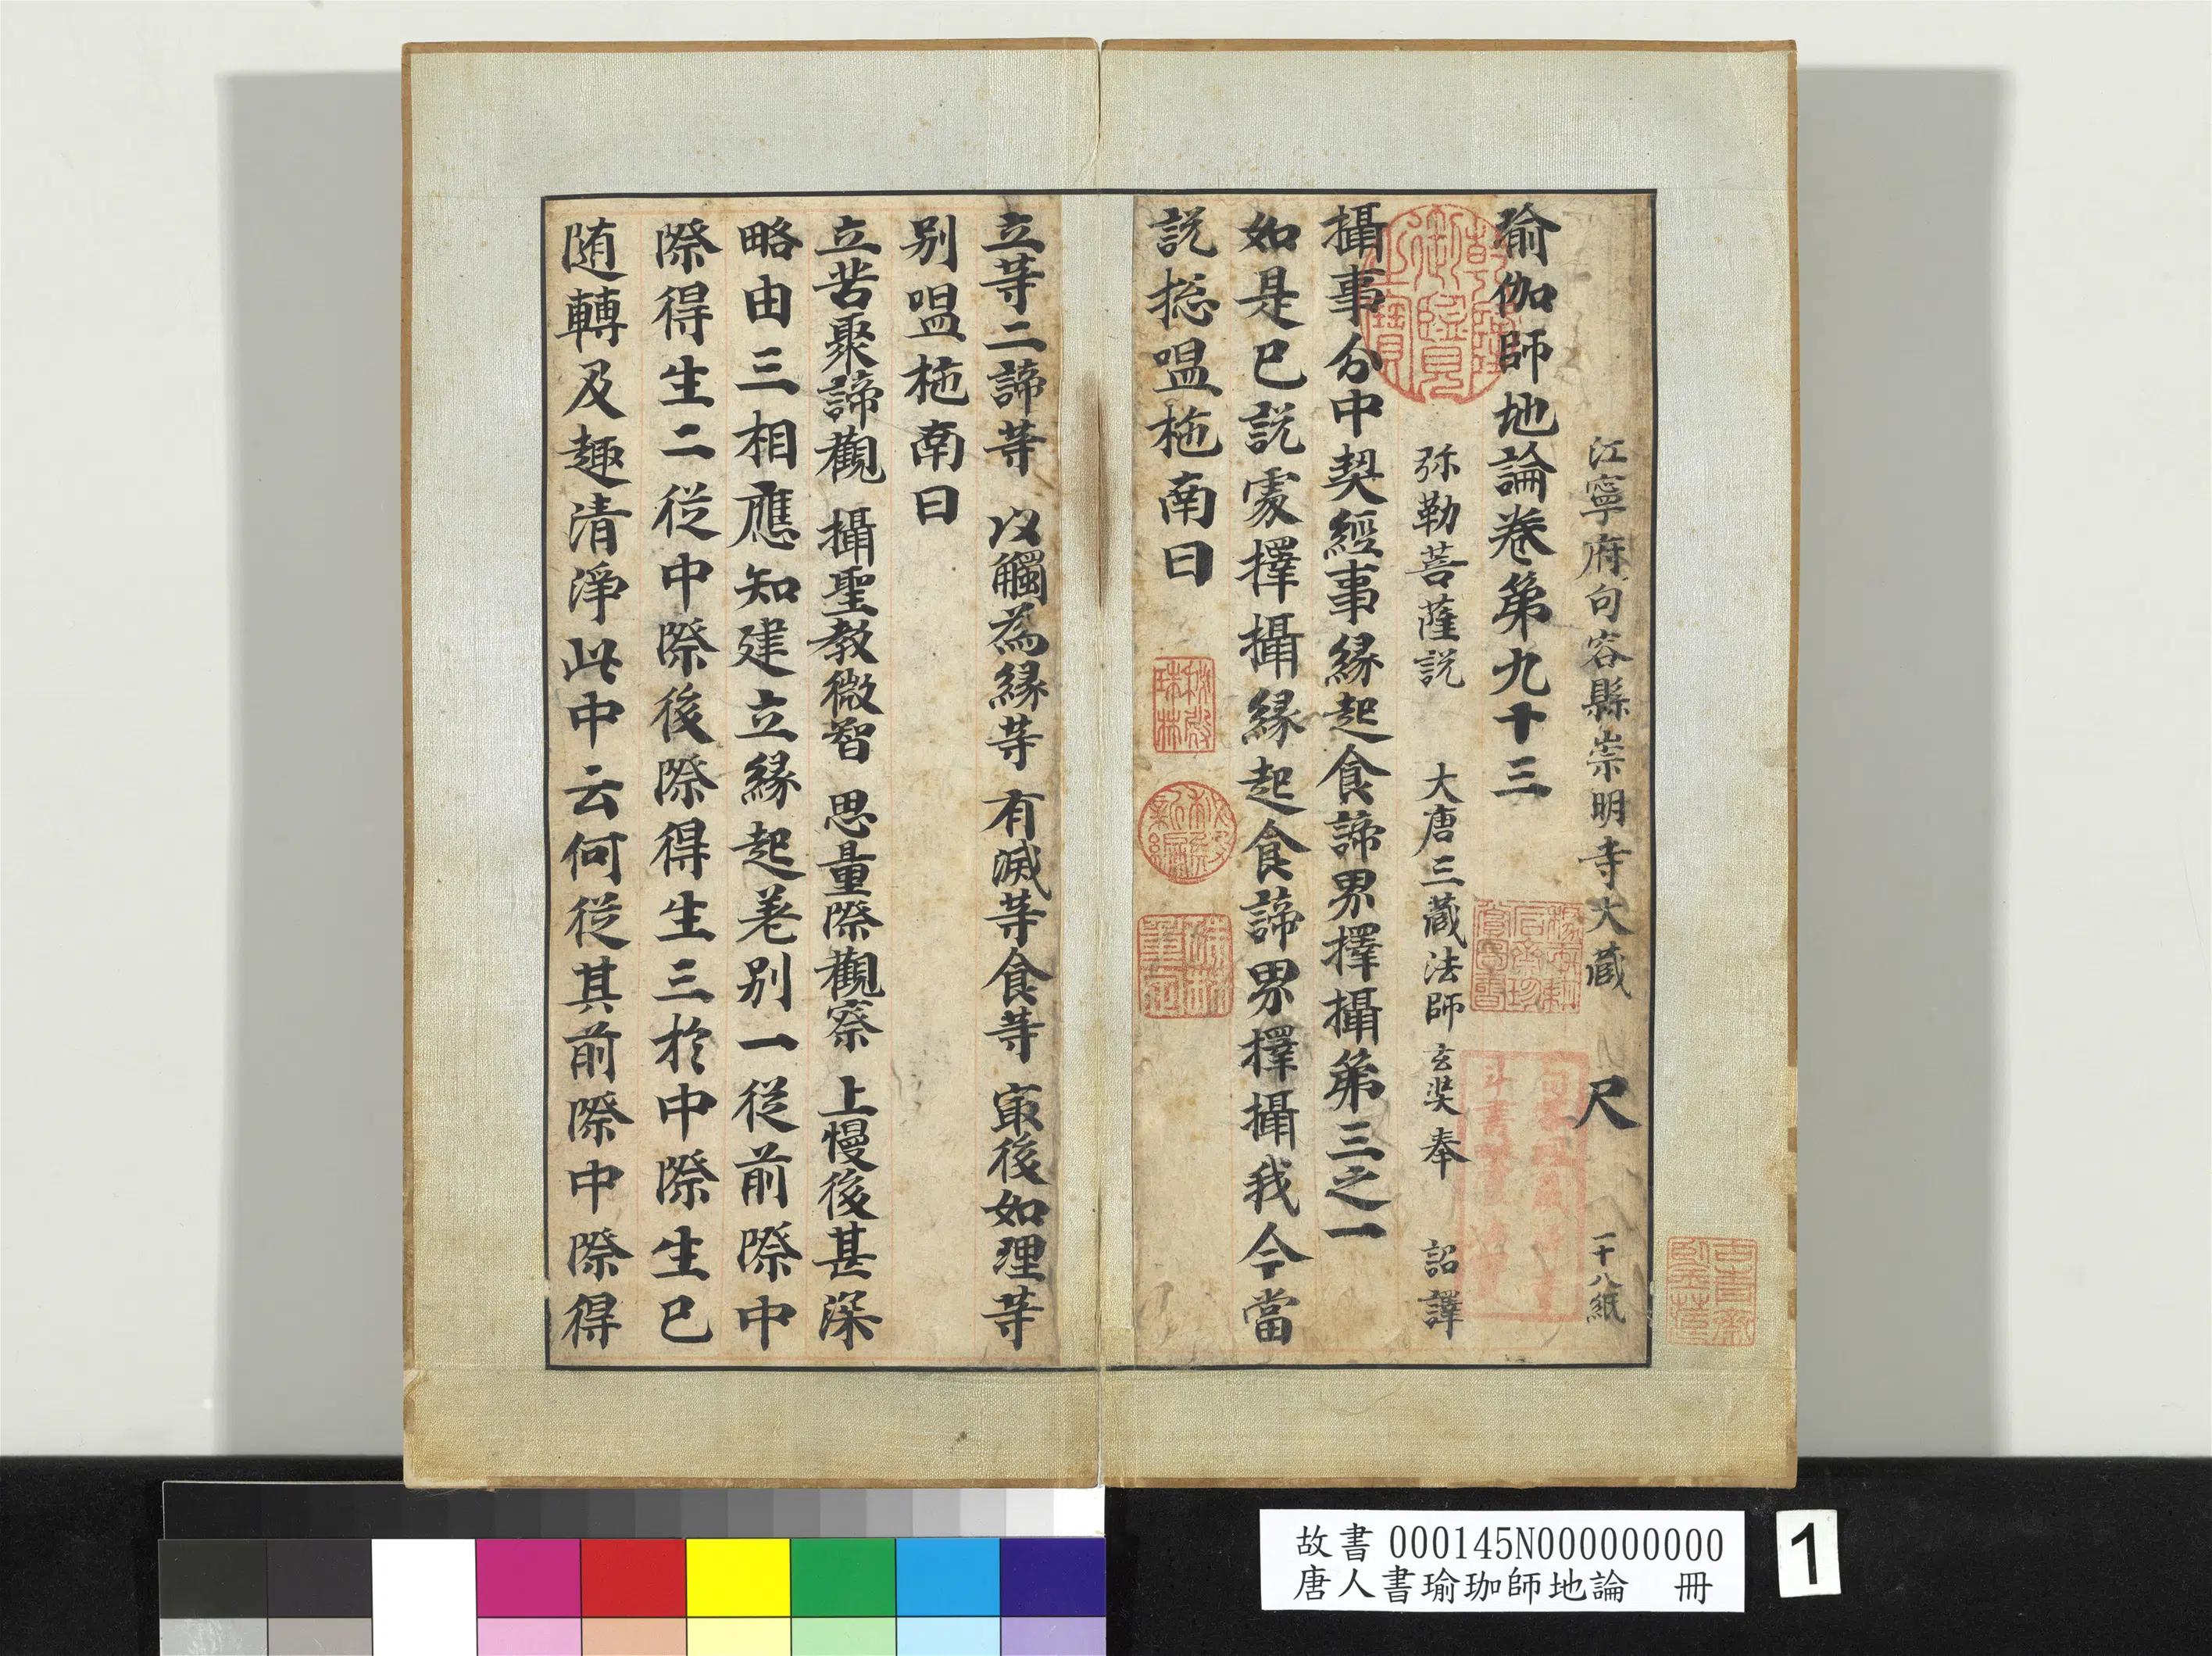 江寧府句容縣崇明寺大藏 尺 一十八紙
瑜伽師地論卷第九十三
弥勒菩薩説 大唐三藏法師玄奘奉 詔譯
攝事分中契經事縁起食諦界擇攝第三之一
如是已説處擇攝縁起食諦界擇攝我今當
説捴嗢柂南曰
立等二諦等 以觸為縁等 有滅等食等 冣後如理等
别嗢柂南曰
立苦聚諦觀 攝聖教微智 思量際觀察 上慢後甚深
略由三相應知建立縁起差别一従前際中
際得生二従中際後際得生三於中際生已
随轉及趣清淨此中云何従其前際中際得
乾隆御覽之寶
故書 000145N000000000
唐人書瑜珈師地論 冊
1